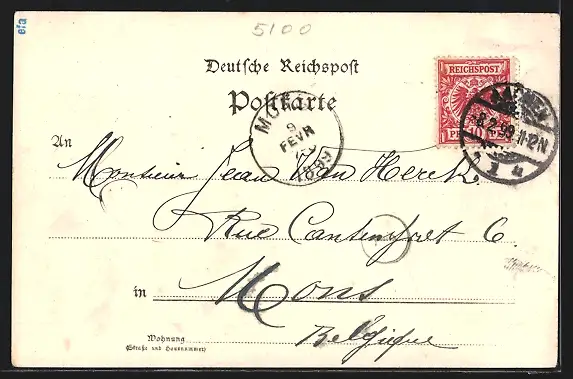 efa
5100
Deutsche Reichspost
Postkarte
REICHSPOST
10
AACHEN
8.2.99.11-12N.
1 4
MONS
9
FEVR
1899
An
Monsieur Jean Van Herck.
Rue 6.
in Mons
Belgique
Wohnung
(Straße und Hausnummer)